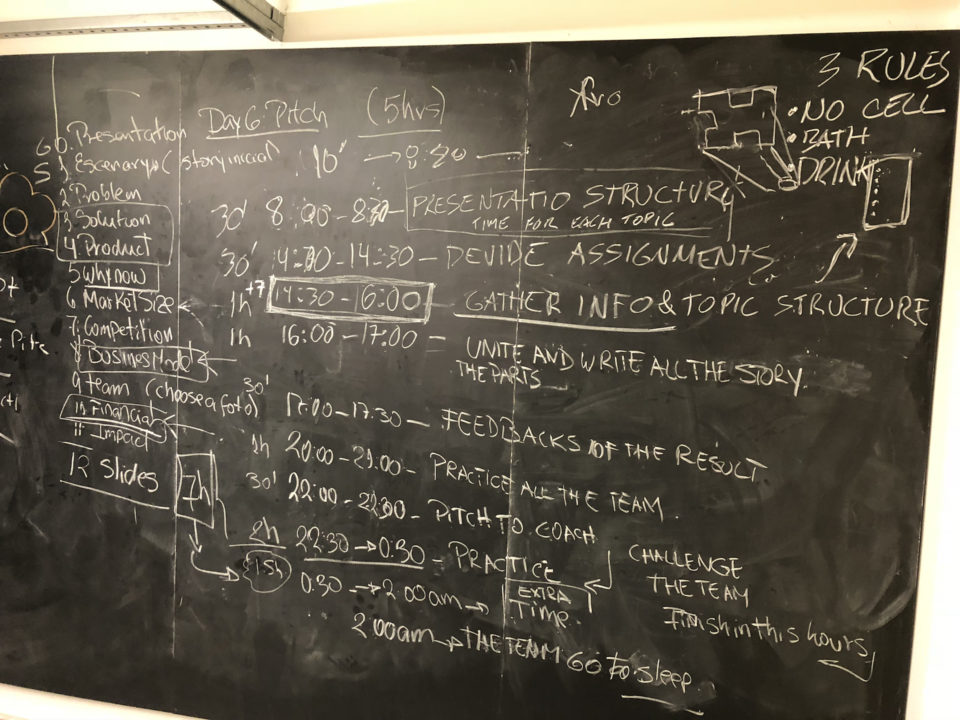 3 RULES
• NO CELL
• BATH
• DRINK
Day 6 Pitch (5hrs)
0. Presentation
1. Escenaryo (story inicial)
2 Problem
3 Solution
4 Product
5 Why now
6 Market Size
7. Competition
8 Busines Model
9 team (choose a foto)
10 Financial
11 Impact
12 Slides
7h
10"
30' 8:00-8:30- PRESENTATIO STRUCTURY
TIME FOR EACH TOPIC
30' 14:00-14:30 - DEVIDE ASSIGNMENTS
1h 14:30-16:00 - GATHER INFO & TOPIC STRUCTURE
1h 16:00-17:00 - UNITE AND WRITE ALL THE STORY.
THE PARTS
30' 17:00-17:30 - FEEDBACKS OF THE RESULT
1h 20:00-21:00- PRACTICE ALL THE TEAM.
30' 22:00-22:30- PITCH TO COACH
2h 22:30→0:30- PRACTICE
1.5h 0:30→2:00am→ EXTRA
Time.
2:00am→THE TEAM GO to sleep.
CHALLENGE
THE TEAM
FINISH in this hours